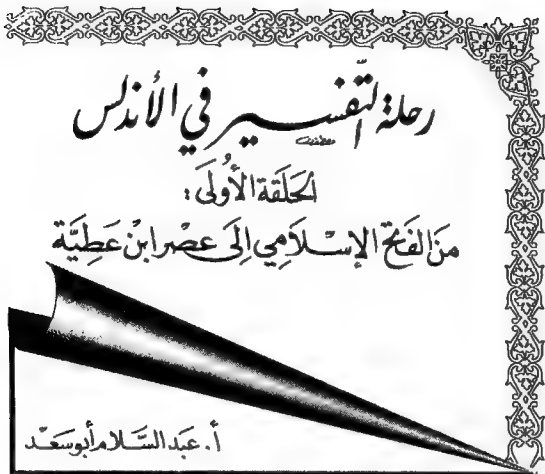 رحلة التّفسير في الأندلس
الحَلَقة الأُولَى:
مِنَ الفَتح الإسْلَامِي إلَى عَصْر ابْن عَطِيَّة
أ. عَبْد السَّلَام أبُو سَعْد